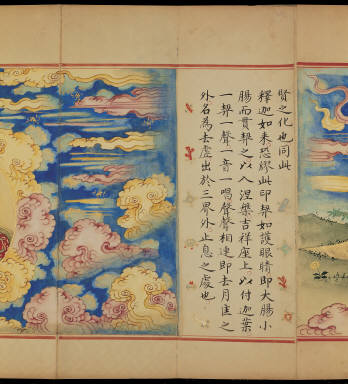 賢之化也同此
釋迦如来恐繆此印契如護眼睛即大腸小
腸而貫契之以入涅槃吉祥座上以付迦葉
一契一聲一音一唱聲聲相連即去月隹之
外名為去處出於三界外止息之處也